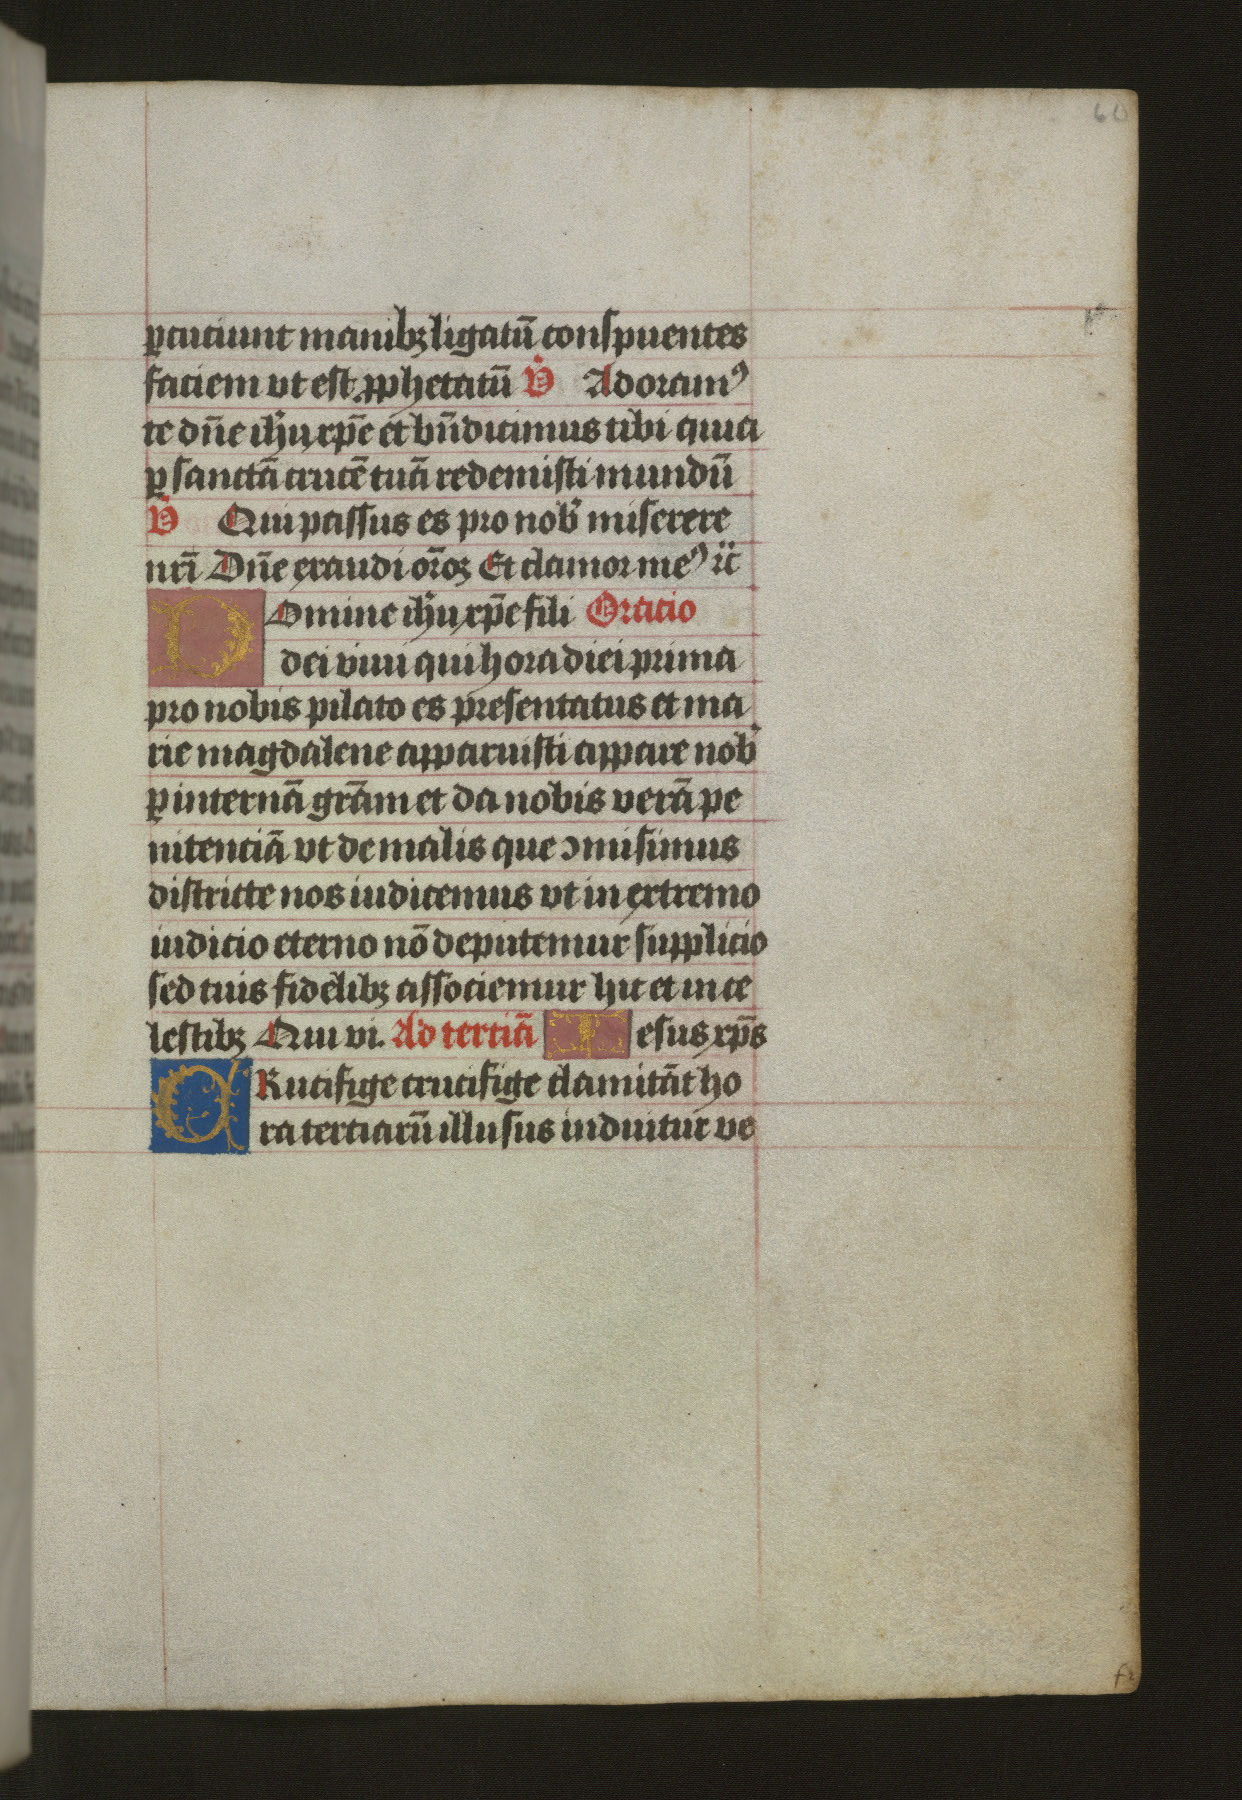 60
ꝑcutiunt manibꝫ ligatū conspuentes
faciem vt est ꝓphetatū V̇ Adoramꝰ
te dn̄e ih̄u xp̄e et bn̄dicimus tibi quia
ꝑ sanctā crucē tuā redemisti mundū
V̇ Qui passus es pro nob̄ miserere
nr̄i Dn̄e exaudi or̄oꝫ Et clamor meꝰ ⁊c̄
Domine ih̄u xp̄e fili Oratio
dei viui qui hora diei prima
pro nobis pilato es presentatus et ma
rie magdalene apparuisti appare nob̄
ꝑ internā grām et da nobis verā pe
nitenciā vt de malis que ꝯmisimus
districte nos iudicemus vt in extremo
iudicio eterno nō deputemur supplicio
sed tuis fidelibꝫ associemur hic et in ce
lestibꝫ Qui vi. Ad tertiā Iesus xp̄s
CRucifige crucifige clamitāt ho
ra tertiarū illusus induitur ve